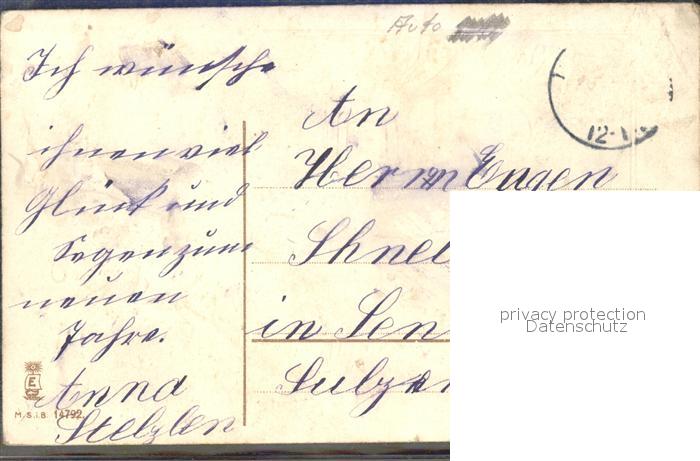 Auto
Ich wünsche
ihnen viel
Glück und
Segen zum
neuen
Jahre.
Anna
Stelzlen
An
Herrn Eugen
Shnei
in Sen
Sulza
12-1
privacy protection
Datenschutz
E
M.S.i.B. 14792